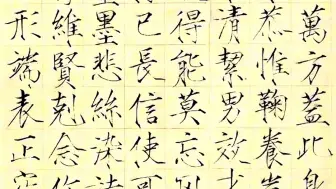 萬方蓋此身
恭惟鞠養
清絜男效才
得能莫忘罔
己長信使可
墨悲絲染詩
維賢剋念作
形端表正空